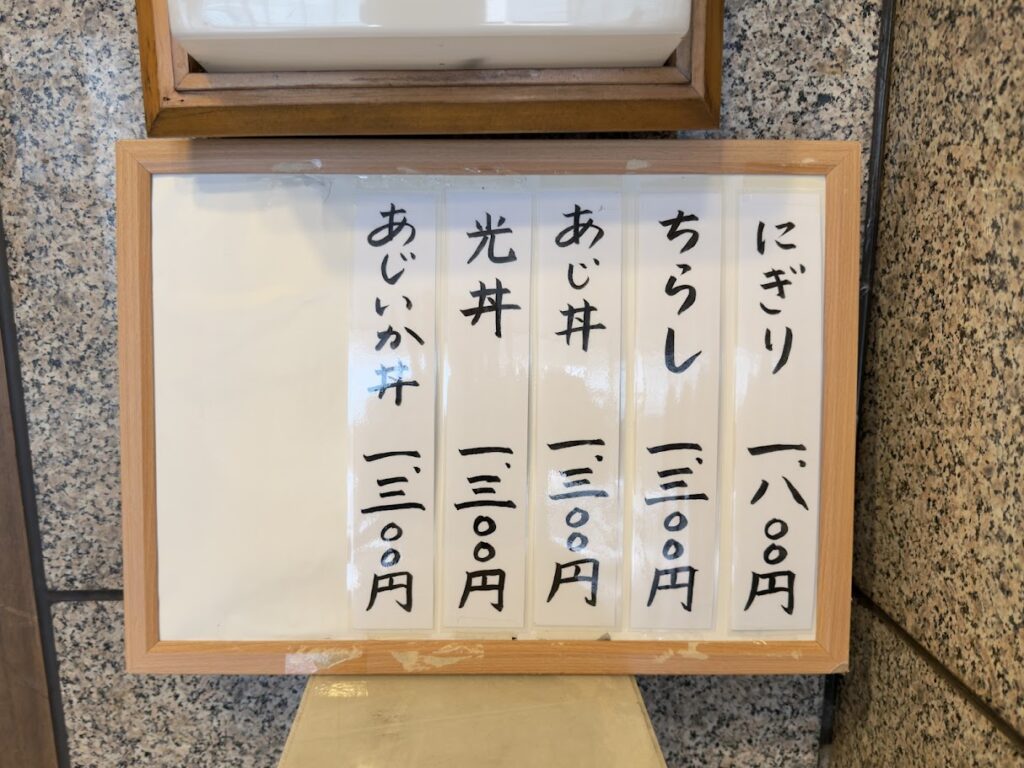 にぎり 一、八〇〇円
ちらし 一、三〇〇円
あじ丼 一、三〇〇円
光丼 一、三〇〇円
あじいか丼 一、三〇〇円